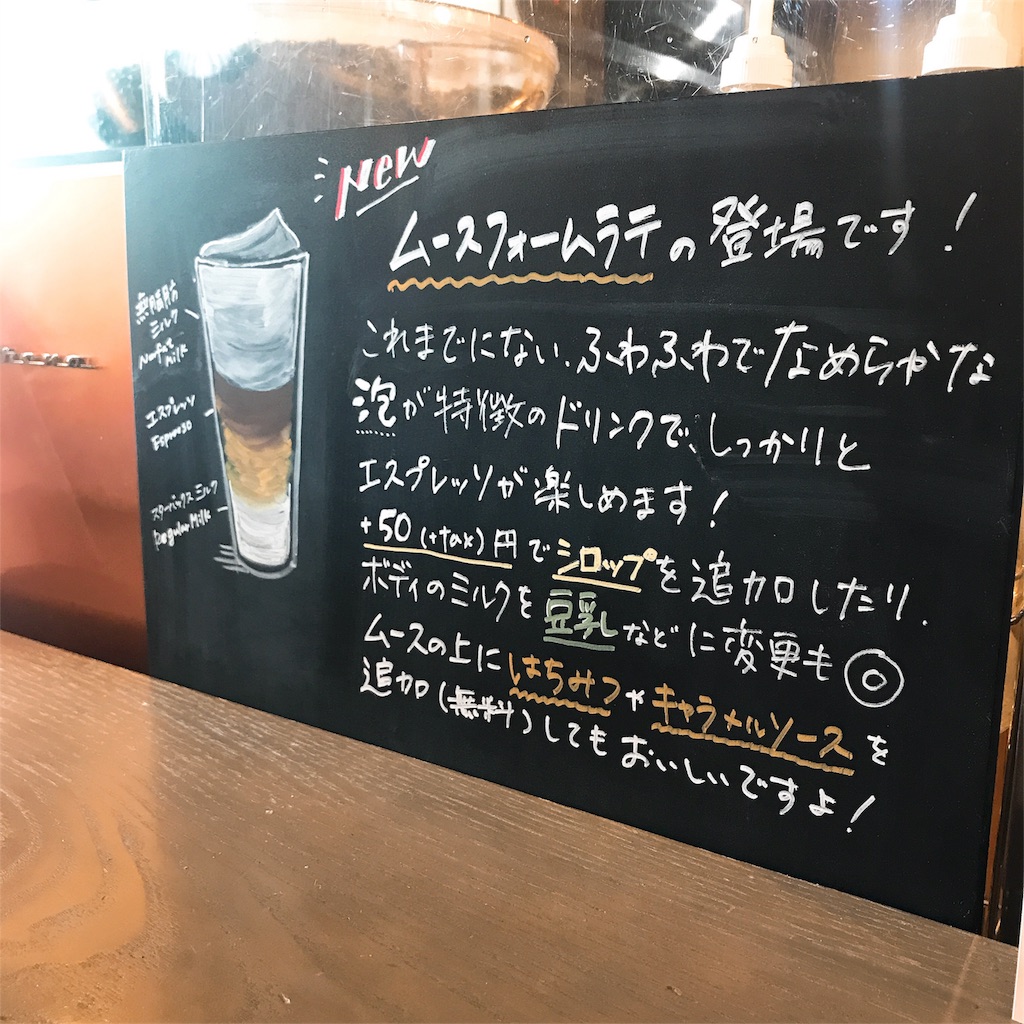 New
ムースフォームラテの登場です!
これまでにない、ふわふわでなめらかな
泡が特徴のドリンクで、しっかりと
エスプレッソが楽しめます!
+50(+tax)円でシロップを追加したり、
ボディのミルクを豆乳などに変更も◎
ムースの上にはちみつやキャラメルソースを
追加(無料)してもおいしいですよ!
無脂肪
ミルク
Nonfat
milk
エスプレッソ
Espresso
スターバックスミルク
Regular Milk